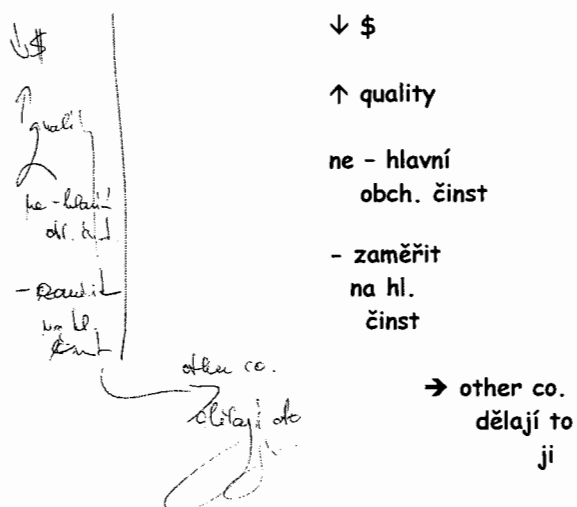 ↓$
↑ quality
ne - hlavní
obch. činst
- zaměřit
na hl.
činst
other co.
dělají to
ji
↓ $
↑ quality
ne - hlavní
obch. činst
- zaměřit
na hl.
činst
→ other co.
dělají to
ji